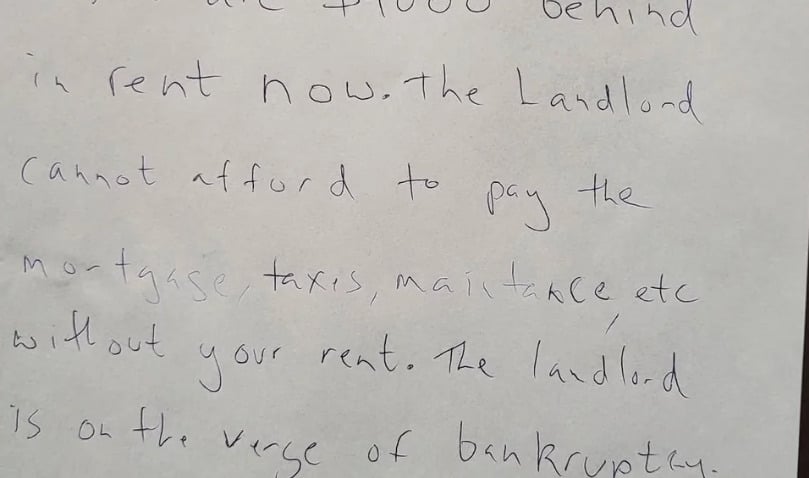 $1000 behind
in rent now. The Landlord
cannot afford to pay the
mortgage, taxis, maintance, etc
without your rent. The landlord
is on the verge of bankruptcy.